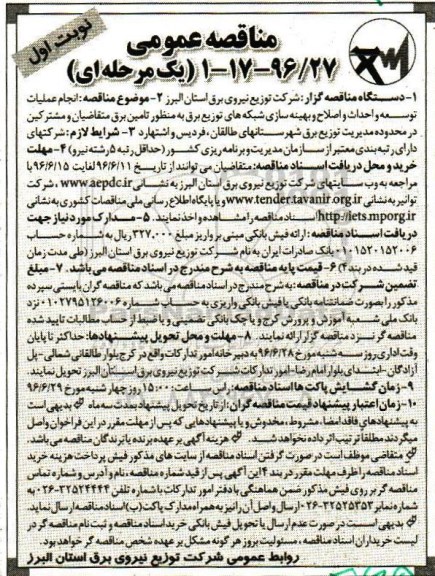 نوبت اول
مناقصه عمومی
۱-۱۷-۹۶/۲۷ (یک مرحله‌ای)
۱- دستگاه مناقصه گزار: شرکت توزیع نیروی برق استان البرز ۲- موضوع مناقصه: انجام عملیات
توسعه و احداث و اصلاح و بهینه سازی شبکه های توزیع برق به منظور تامین برق متقاضیان و مشترکین
در محدوده مدیریت توزیع برق شهرستانهای طالقان، فردیس و اشتهارد ۳- شرایط لازم: شرکتهای
دارای رتبه بندی معتبر از سازمان مدیریت و برنامه ریزی کشور (حداقل رتبه ۵ رشته نیرو) ۴- مهلت
خرید و محل دریافت اسناد مناقصه: متقاضیان می توانند از تاریخ ۹۶/۶/۱۱ لغایت ۹۶/۶/۱۵ با
مراجعه به وب سایتهای شرکت توزیع نیروی برق استان البرز به نشانی www.aepdc.ir ، شرکت
توانیر به نشانی www.tender.tavanir.org.ir و یا پایگاه اطلاع رسانی ملی مناقصات کشوری به نشانی
http://iets.mporg.ir اسناد مناقصه را مشاهده و اخذ نمایند. ۵- مدارک مورد نیاز جهت
دریافت اسناد مناقصه: ارائه فیش بانکی مبنی بر واریز مبلغ ۳۲۷،۰۰۰ ریال به شماره حساب
۰۱۰۱۵۲۰۱۵۲۰۰۶ بانک صادرات ایران به نام شرکت توزیع نیروی برق استان البرز (طی مدت زمان
قید شده در بند ۴) ۶- قیمت پایه مناقصه به شرح مندرج در اسناد مناقصه می باشد. ۷- مبلغ
تضمین شرکت در مناقصه: به شرح مندرج در اسناد مناقصه می باشد که مناقصه گران بایستی سپرده
مذکور را بصورت ضمانتنامه بانکی یا فیش بانکی واریزی به حساب شماره ۰۱۰۲۷۹۵۱۲۶۰۰۶ نزد
بانک ملی شعبه آموزش و پرورش کرج و یا چک بانکی تضمینی و یا قید از حساب مطالبات تایید شده
مناقصه گر نزد مناقصه گزار ارائه نمایند. ۸- مهلت و محل تحویل پیشنهادها: حداکثر تا پایان
وقت اداری روز سه شنبه مورخ ۹۶/۶/۲۸ به دبیرخانه امور تدارکات واقع در کرج بلوار طالقانی شمالی- پل
آزادگان- ابتدای بلوار امام رضا- امور تدارکات شرکت توزیع نیروی برق استان البرز تحویل نمایند.
۹- زمان گشایش پاکت ها اسناد مناقصه: راس ساعت ۱۵:۰۰ روز چهار شنبه مورخ ۹۶/۶/۲۹
۱۰- زمان اعتبار پیشنهاد قیمت مناقصه گران: از تاریخ تحویل پیشنهاد بمدت سه ماه بدیهی است
به پیشنهادهای فاقد امضا، مشروط، مخدوش و یا پیشنهادهایی که پس از مهلت مقرر در این فراخوان واصل
میگردند مطلقا ترتیب اثر داده نخواهد شد. هزینه آگهی بر عهده برنده یا برندگان مناقصه می باشد.
متقاضی موظف است در صورت گرفتن اسناد مناقصه از سایت های مذکور فیش پرداخت هزینه خرید
اسناد مناقصه را ظرف مهلت مقرر در بند ۴ این آگهی پس از قید شماره مناقصه، نام و آدرس و شماره تماس
مناقصه گر بر روی فیش مذکور ضمن هماهنگی با دفتر امور تدارکات با شماره تلفن ۳۲۵۲۴۴۴۴-۰۲۶ به
شماره نمابر ۳۲۵۲۵۳۵۳-۰۲۶ ارسال و اصل آن را نیز به همراه مدارک پاکت (ب) اسناد مناقصه ارسال نماید.
بدیهی است در صورت عدم ارسال یا تحویل فیش بانکی خرید اسناد مناقصه و ثبت نام مناقصه گر در
لیست خریداران اسناد مناقصه، مسئولیت بروز هر گونه مشکل بر عهده شخص مناقصه گر خواهد بود.
روابط عمومی شرکت توزیع نیروی برق استان البرز